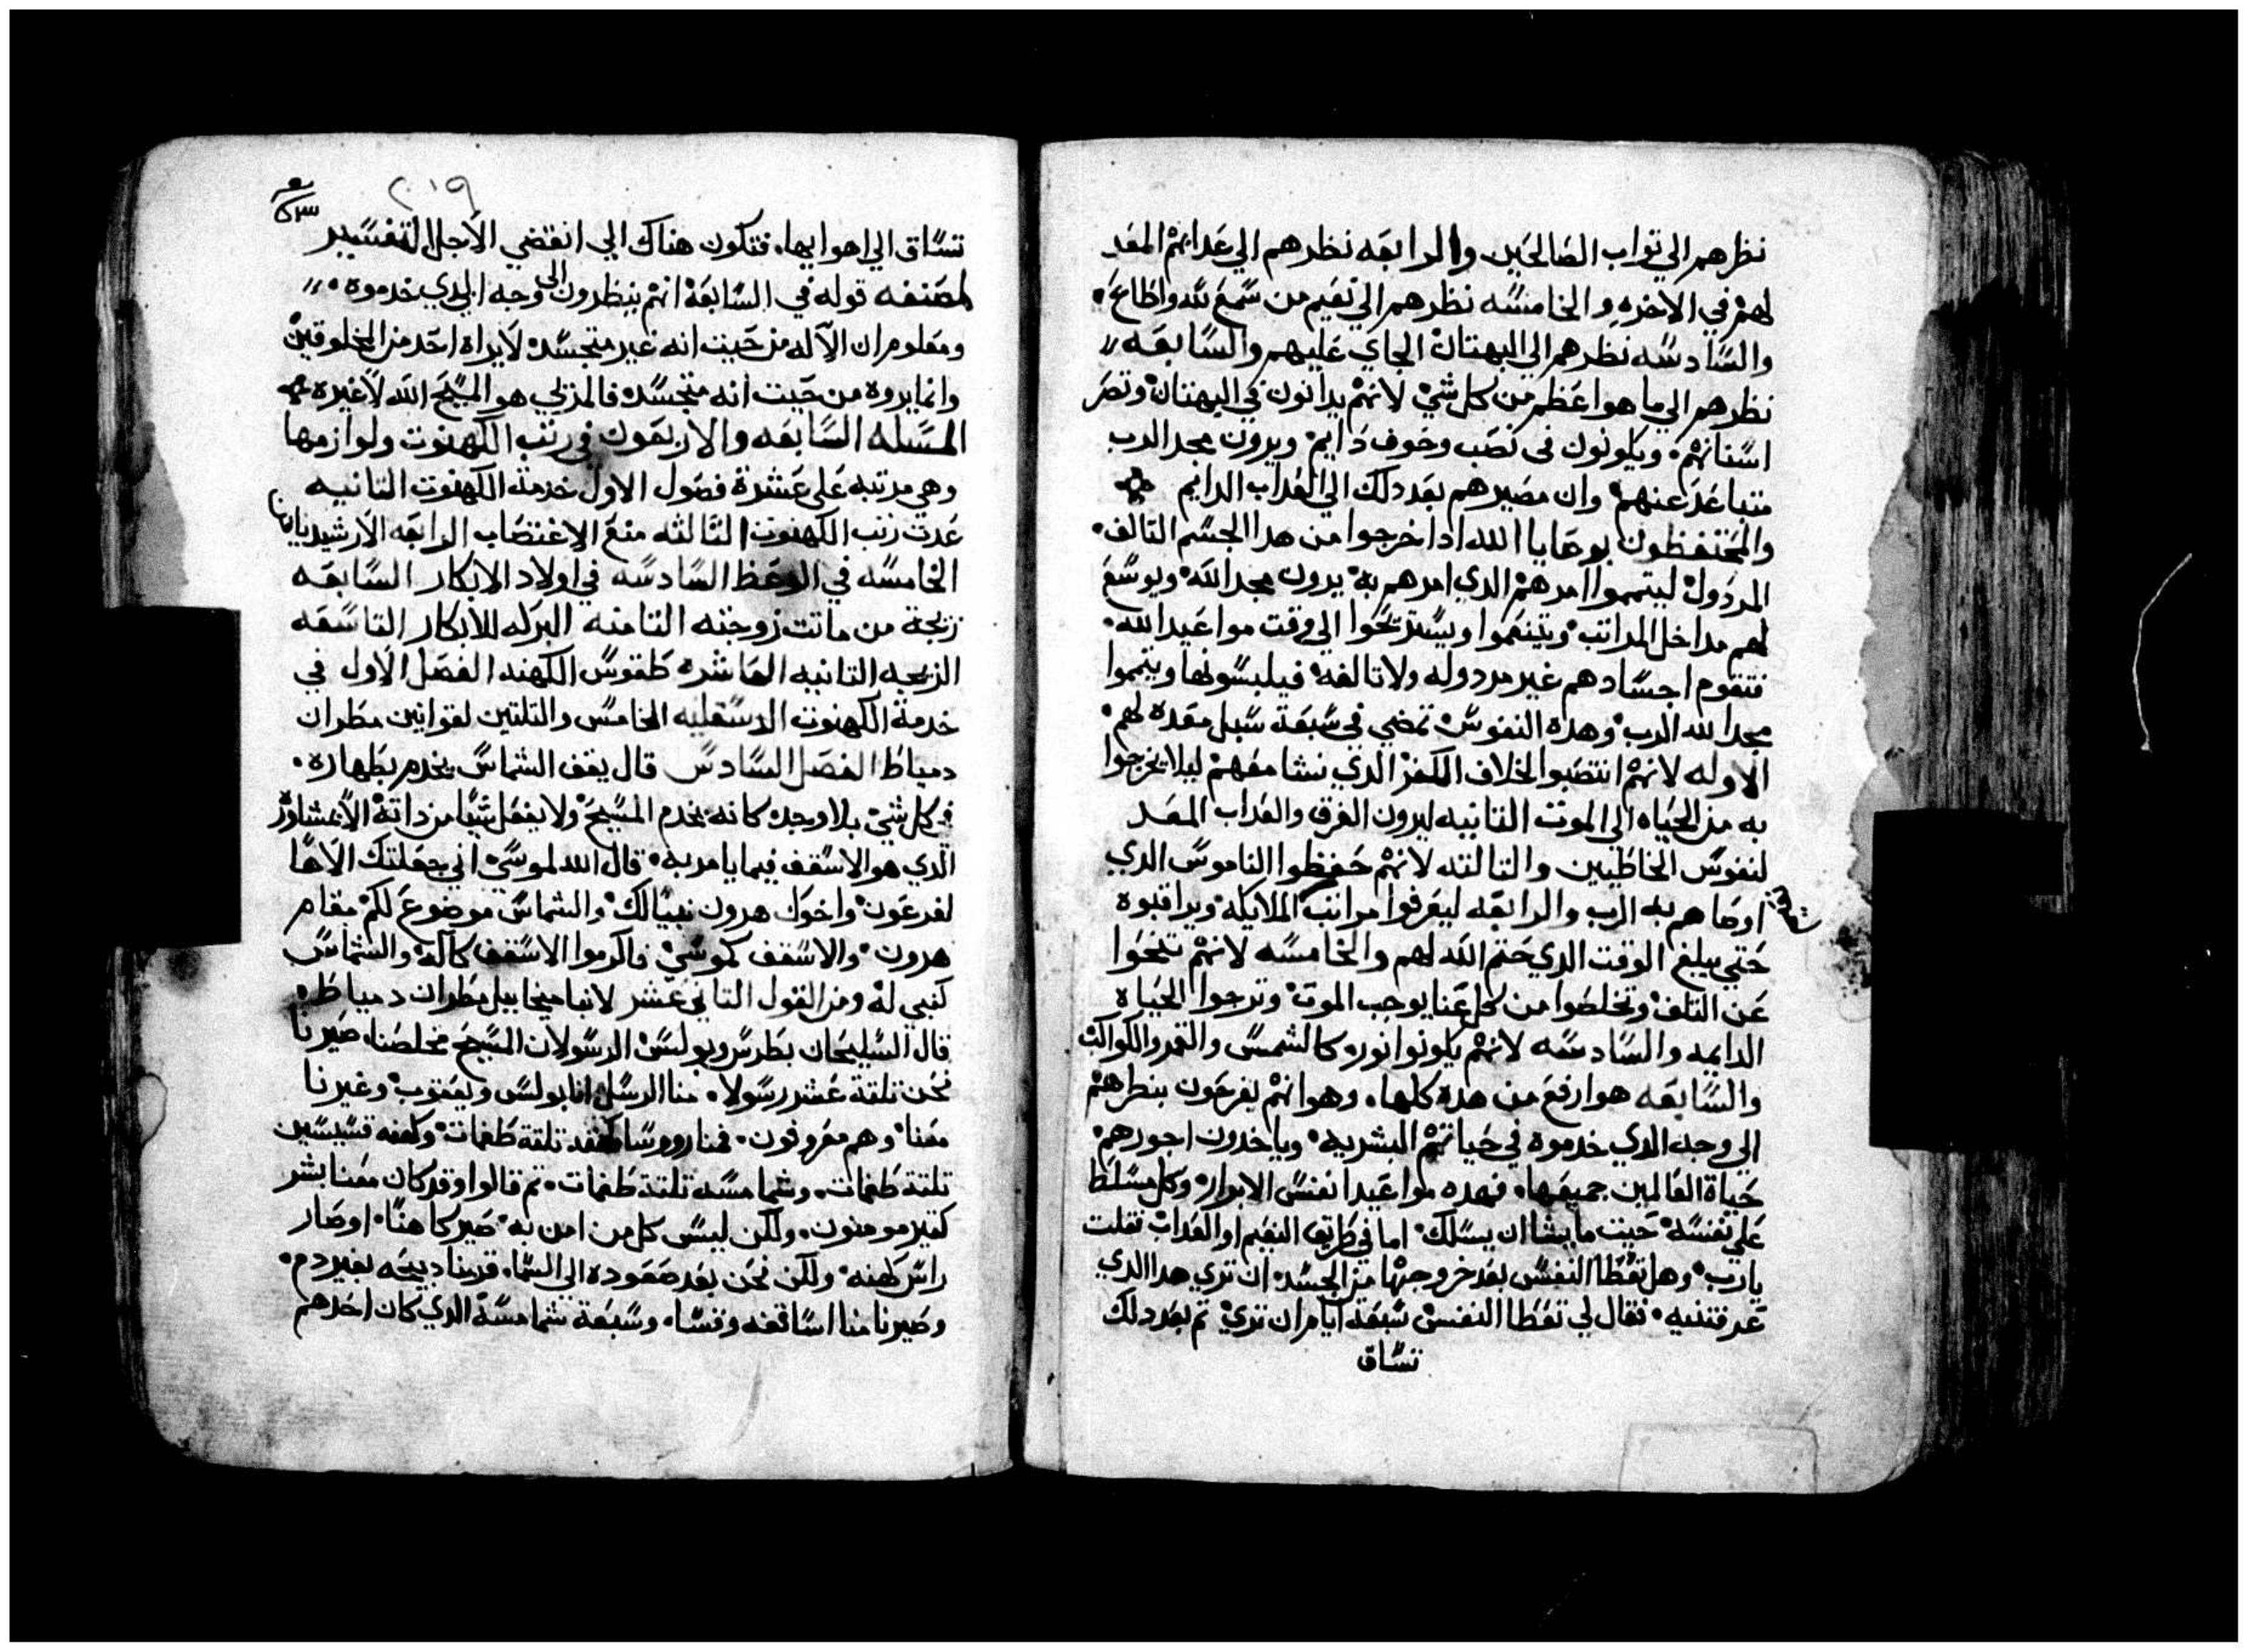 نظرهم الي تواب الصالحين والرابعه نظرهم الي عدابهم المعد
لهم في الاخره والخامسه نظرهم الي نعيم من سمع لله واطاع
والسادسه نظرهم الي البهتان الجاي عليهم والسابعه
نظرهم الي ما هو اعظم من كل شي لانهم يدانون في البهتان وتصر
اسنانهم ويكونون في نصب وخوف دايم ويرون مجد الرب
متباعد عنهم وان مصيرهم بعد دلك الي العداب الدايم
والمحتفظون بوصايا الله ادا خرجوا من هدا الجسم التالف
المردول ليتمموا امرهم الدي امرهم به يرون مجد الله ويوسع
لهم مداخل المراتب ويتنعموا ويستريحوا الي وقت مواعيد الله
فتقوم اجسادهم غير مردوله ولا تالفه فيلبسونها ويتمموا
مجد الله الرب وهده النفوس تمضي في سبعة سبل معده لهم
الاوله لانهم انتصبوا لخلاف الكفر الدي نشا معهم ليلا يخرجوا
به من الحياه الي الموت التانيه ليرون الفرق والعداب المعد
لنفوس الخاطيين والتالته لانهم حفظوا الناموس الدي
اوصاهم به الرب والرابعه ليعرفوا مراتب الملايكه ويراقبوه
حتي يبلغ الوقت الدي حتم الله لهم والخامسه لانهم تنحوا
عن التلف وتخلصوا من كل عنا يوجب الموت وترجوا الحياه
الدايمه والسادسه لانهم يكونوا نوره كالشمس والقمر والكواكب
والسابعه هو ارفع من هده كلها وهو انهم يفرحون بنظرهم
الي وجه الدي خدموه في حياتهم البشريه وياخدون اجورهم
حياة العالمين جميعها فهده مواعيد انفس الابرار وكل مسلط
علي نفسه حيت ما يشا ان يسلك اما في طريق النعيم او العداب تقلت
يارب وهل تعطا النفس بعد خروجها من الجسد ان تري هدا الدي
عرفتنيه فقال لي تعطا النفس سبعة ايام ان تري تم بعد دلك
تساق
٢٠١٩
تساق الي اهوايها فتكون هناك الي انقضي الاجل التفسير
لمصنفه قوله في السابعة انهم ينظرون الي وجه الدي خدموه
ومعلوم ان الاله من حيت انه غير متجسد لا يراه احد من المخلوقين
وانما يروه من حيت انه متجسد فالمري هو المسيح الله لا غيره
المسله السابعه والاربعون في رتب الكهنوت ولوازمها
وهي مرتبه علي عشرة فصول الاول خدمة الكهنوت التانيه
عدت رتب الكهنوت التالته منع الاغتصاب الرابعه الارشيدياقن
الخامسه في الوعظ السادسه في اولاد الابكار السابعه
زيجة من ماتت زوجته التامنه البركه للابكار التاسعه
الزيجه التانيه العاشره طقوس الكهنه الفصل الاول في
خدمة الكهنوت الدسقليه الخامس والتلتين لقوانين مطران
دمياط الفصل السادس قال يقف الشماس يخدم بطهاره
في كل شي بلا وجد كانه يخدم المسيح ولا يفعل شيا من داته الا بمشاورة
الدي هو الاسقف فيما يامر به قال الله لموسي اني جعلتك الاها
لفرعون واخوك هرون نبيا لك والشماس موضوع لكم مقام
هرون والاسقف كموسي فاكرموا الاسقف كاله والشماس
كنبي له ومن القول التاني عشر لانبا ميخاييل مطران دمياط
قال السليحان بطرس وبولس الرسولان المسيح مخلصنا صيرنا
نحن تلتة عشر رسولا منا الرسل انا بولس ويعقوب وغيرنا
معنا وهم معروفون فمنا روسا كهنه تلتة طغمات وكهنه قسيسين
تلتة طغمات وشمامسه تلتة طغمات تم قالوا وقد كان معنا بشر
كتير مومنون ولكن ليس كل من امن به صير كاهنا او صار
راس كهنه ولكن نحن بعد صعوده الي السما قربنا دبيحه بغير دم
وصيرنا منا اساقفه وقسا وسبعة شمامسة الدي كان احدهم